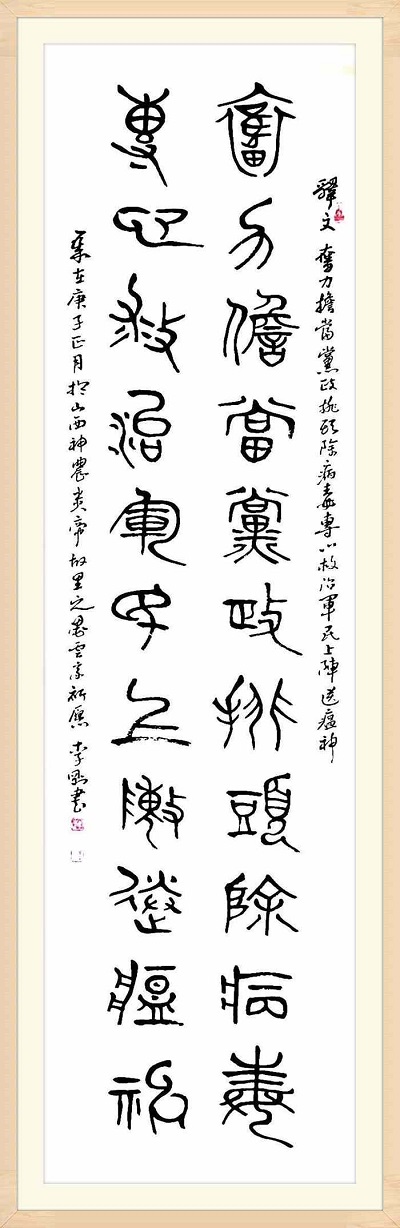 釋文 奮力擔當黨政挑頭除病毒專心救治軍民上陣送瘟神
奮力擔當黨政挑頭除病毒
專心救治軍民上陣送瘟神
歲在庚子正月於山西神農炎帝故里之墨雲斎祈愿 李書